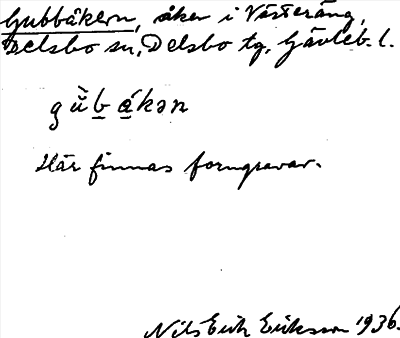 Gubbåkern, åker i Västeräng,
Delsbo sn, Delsbo tg, Gävleb. l.
gùb ákən
Här finnas forngravar.
Nils Erik Eriksson 1936.